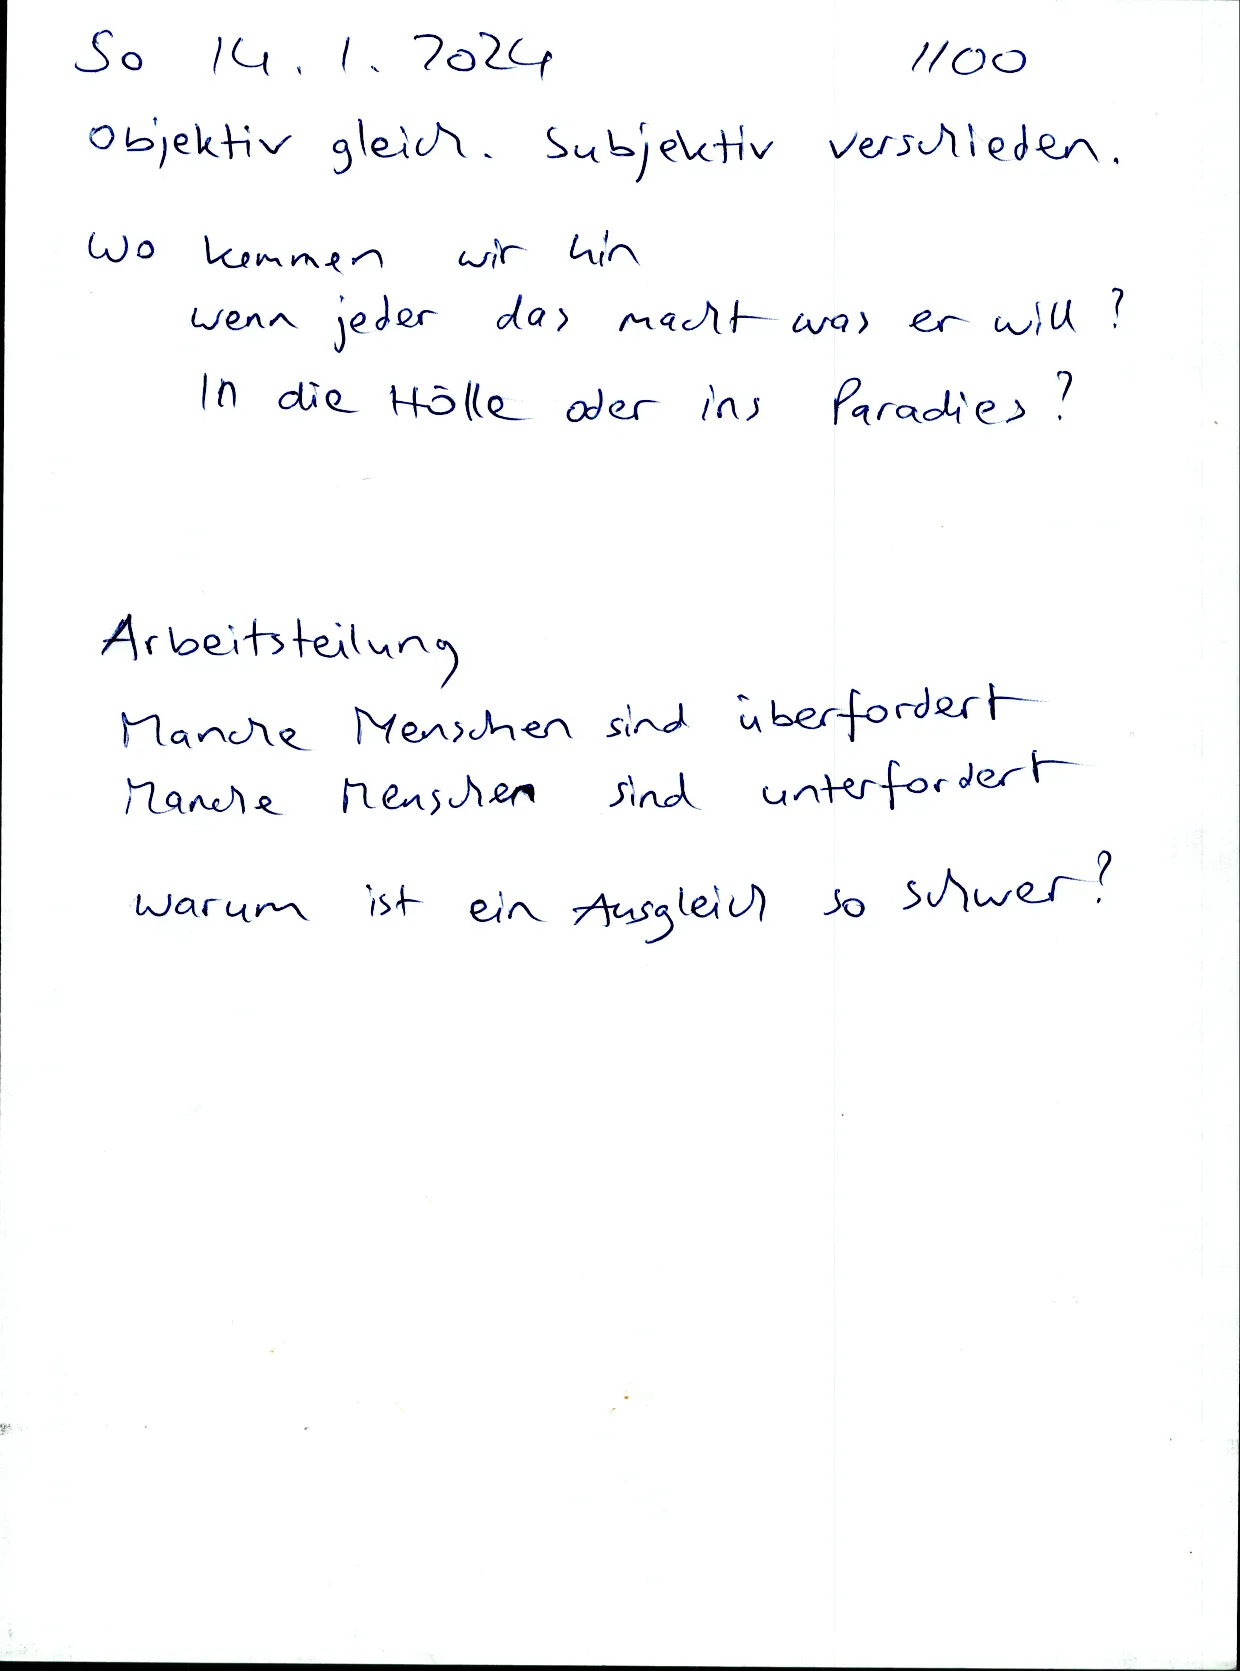 So 14.1.2024 1100
Objektiv gleich. Subjektiv verschieden.
Wo kommen wir hin
wenn jeder das macht was er will?
In die Hölle oder ins Paradies?
Arbeitsteilung
Manche Menschen sind überfordert
Manche Menschen sind unterfordert
Warum ist ein Ausgleich so schwer?